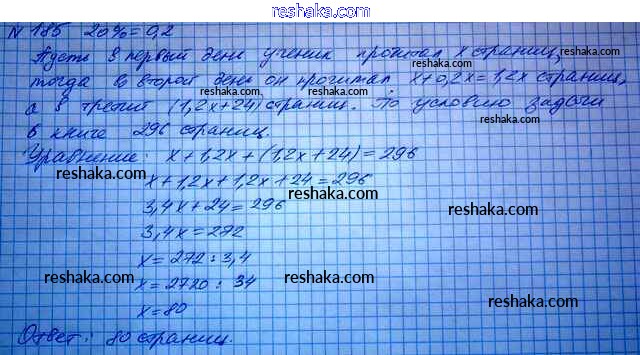 reshaka.com
N 185 20%=0,2
Пусть в первый день ученик прочитал x страниц,
тогда во второй день он прочитал x+0,2x=1,2x страниц,
а в третий (1,2x+24) страниц. По условию задачи
в книге 296 страниц.
reshaka.com
reshaka.com
Уравнение: x+1,2x+(1,2x+24)=296
reshaka.com
x+1,2x+1,2x+24=296
3,4x+24=296
reshaka.com
3,4x=272
x=272:3,4
reshaka.com
reshaka.com
x=2720:34
x=80
Ответ: 80 страниц.
reshaka.com